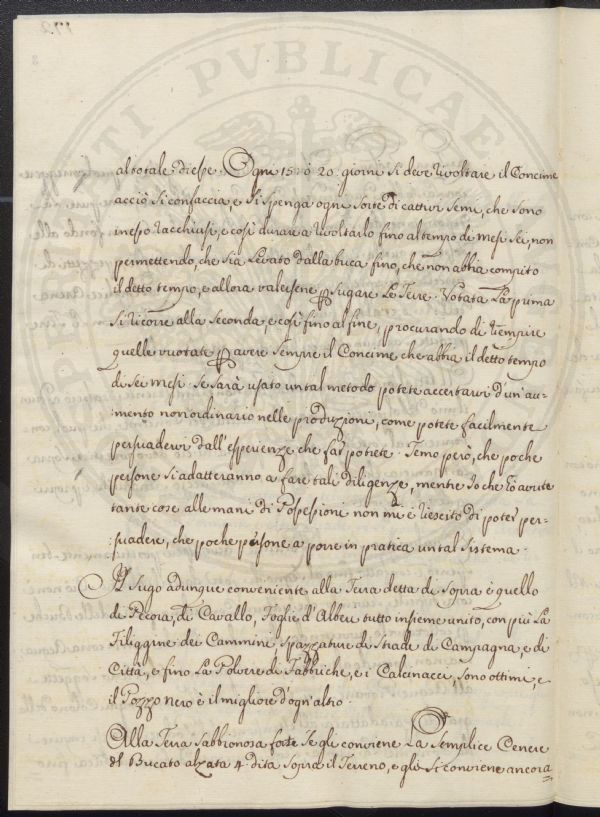 al totale di esse. Ogni 15: ò 20. giorni si deve rivoltare il Concime
acciò si confaccia, e si spenga ogni sorte di cattivi semi, che sono
in esso racchiusi, e così durare a rivoltarlo fino al tempo di mesi sei, non
permettendo, che sia levato dalla buca fino, che non abbia compito
il detto tempo, e allora valersene p sugare Le Terre. Votata La prima
si ricorre alla Seconda e così fino al fine, procurando di riempire
quelle vuotate p avere sempre il Concime che abbia il detto tempo
di sei mesi. Se sarà usato un tal metodo potete accertarvi d'un au=
:mento non ordinario nelle produzioni, come potete facilmente
persuadervi dall'esperienze che far potrete. Temo però, che poche
persone si adatteranno a fare tali diligenze, mentre Io che hò avute
tante cose alle mani di Possessioni non mi è riescito di poter per-
:suadere, che poche persone a porre in pratica un tal sistema.
Il Sugo adunque conveniente alla Terra detta di sopra è quello
di Pecora, di Cavallo, Foglie d'Alberi tutto insieme unito, con più La
Filiggine dei Cammini Spazzature di Strade di Campagna, e di
Città, e fino La Polvere di Fabbriche, e i Calcinacci, sono ottimi, e
il Pozzo nero è il migliore d'ogn'altro.
Alla Terra sabbionosa forte se gli conviene La Semplice Cenere
del Bucato alzata 4. dita sopra il Terreno, e gli si conviene ancora